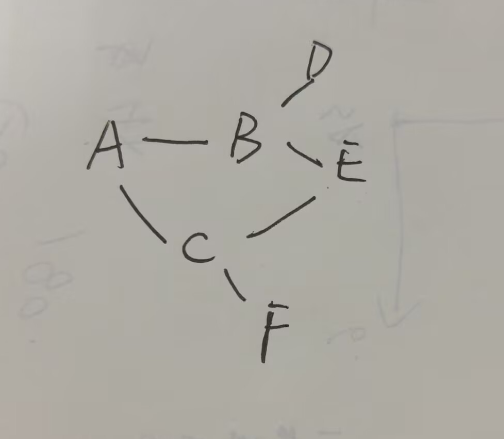 D
A B E
C
F